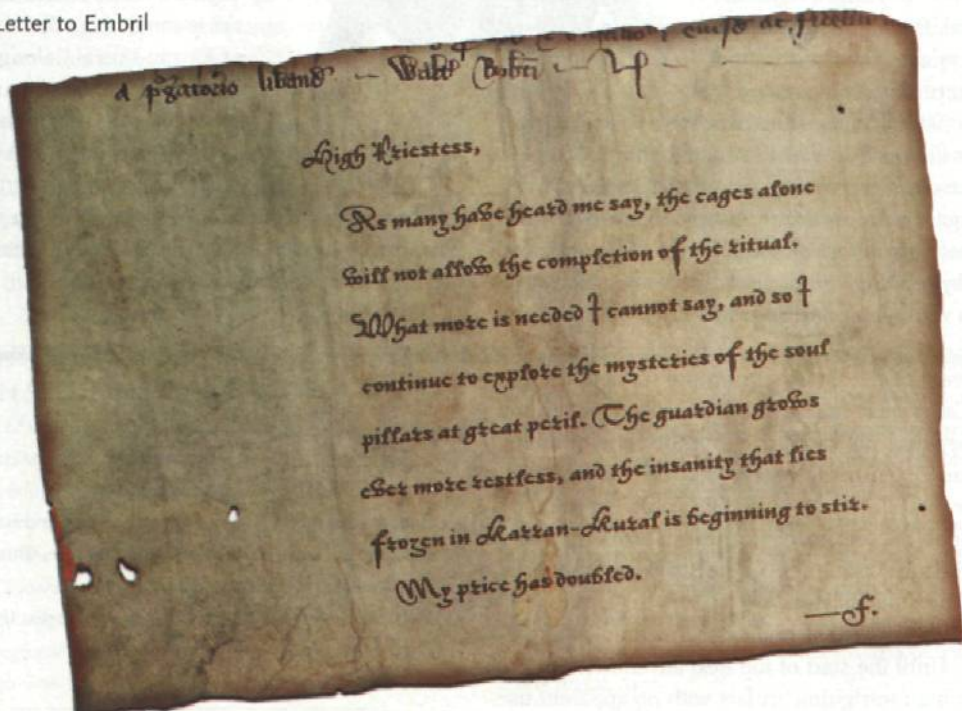 Letter to Embril
High Priestess,
As many have heard me say, the cages alone
will not allow the completion of the ritual.
What more is needed I cannot say, and so I
continue to explore the mysteries of the soul
pillars at great peril. The guardian grows
ever more restless, and the insanity that lies
frozen in Karzan-Kural is beginning to stir.
My price has doubled.
—f.